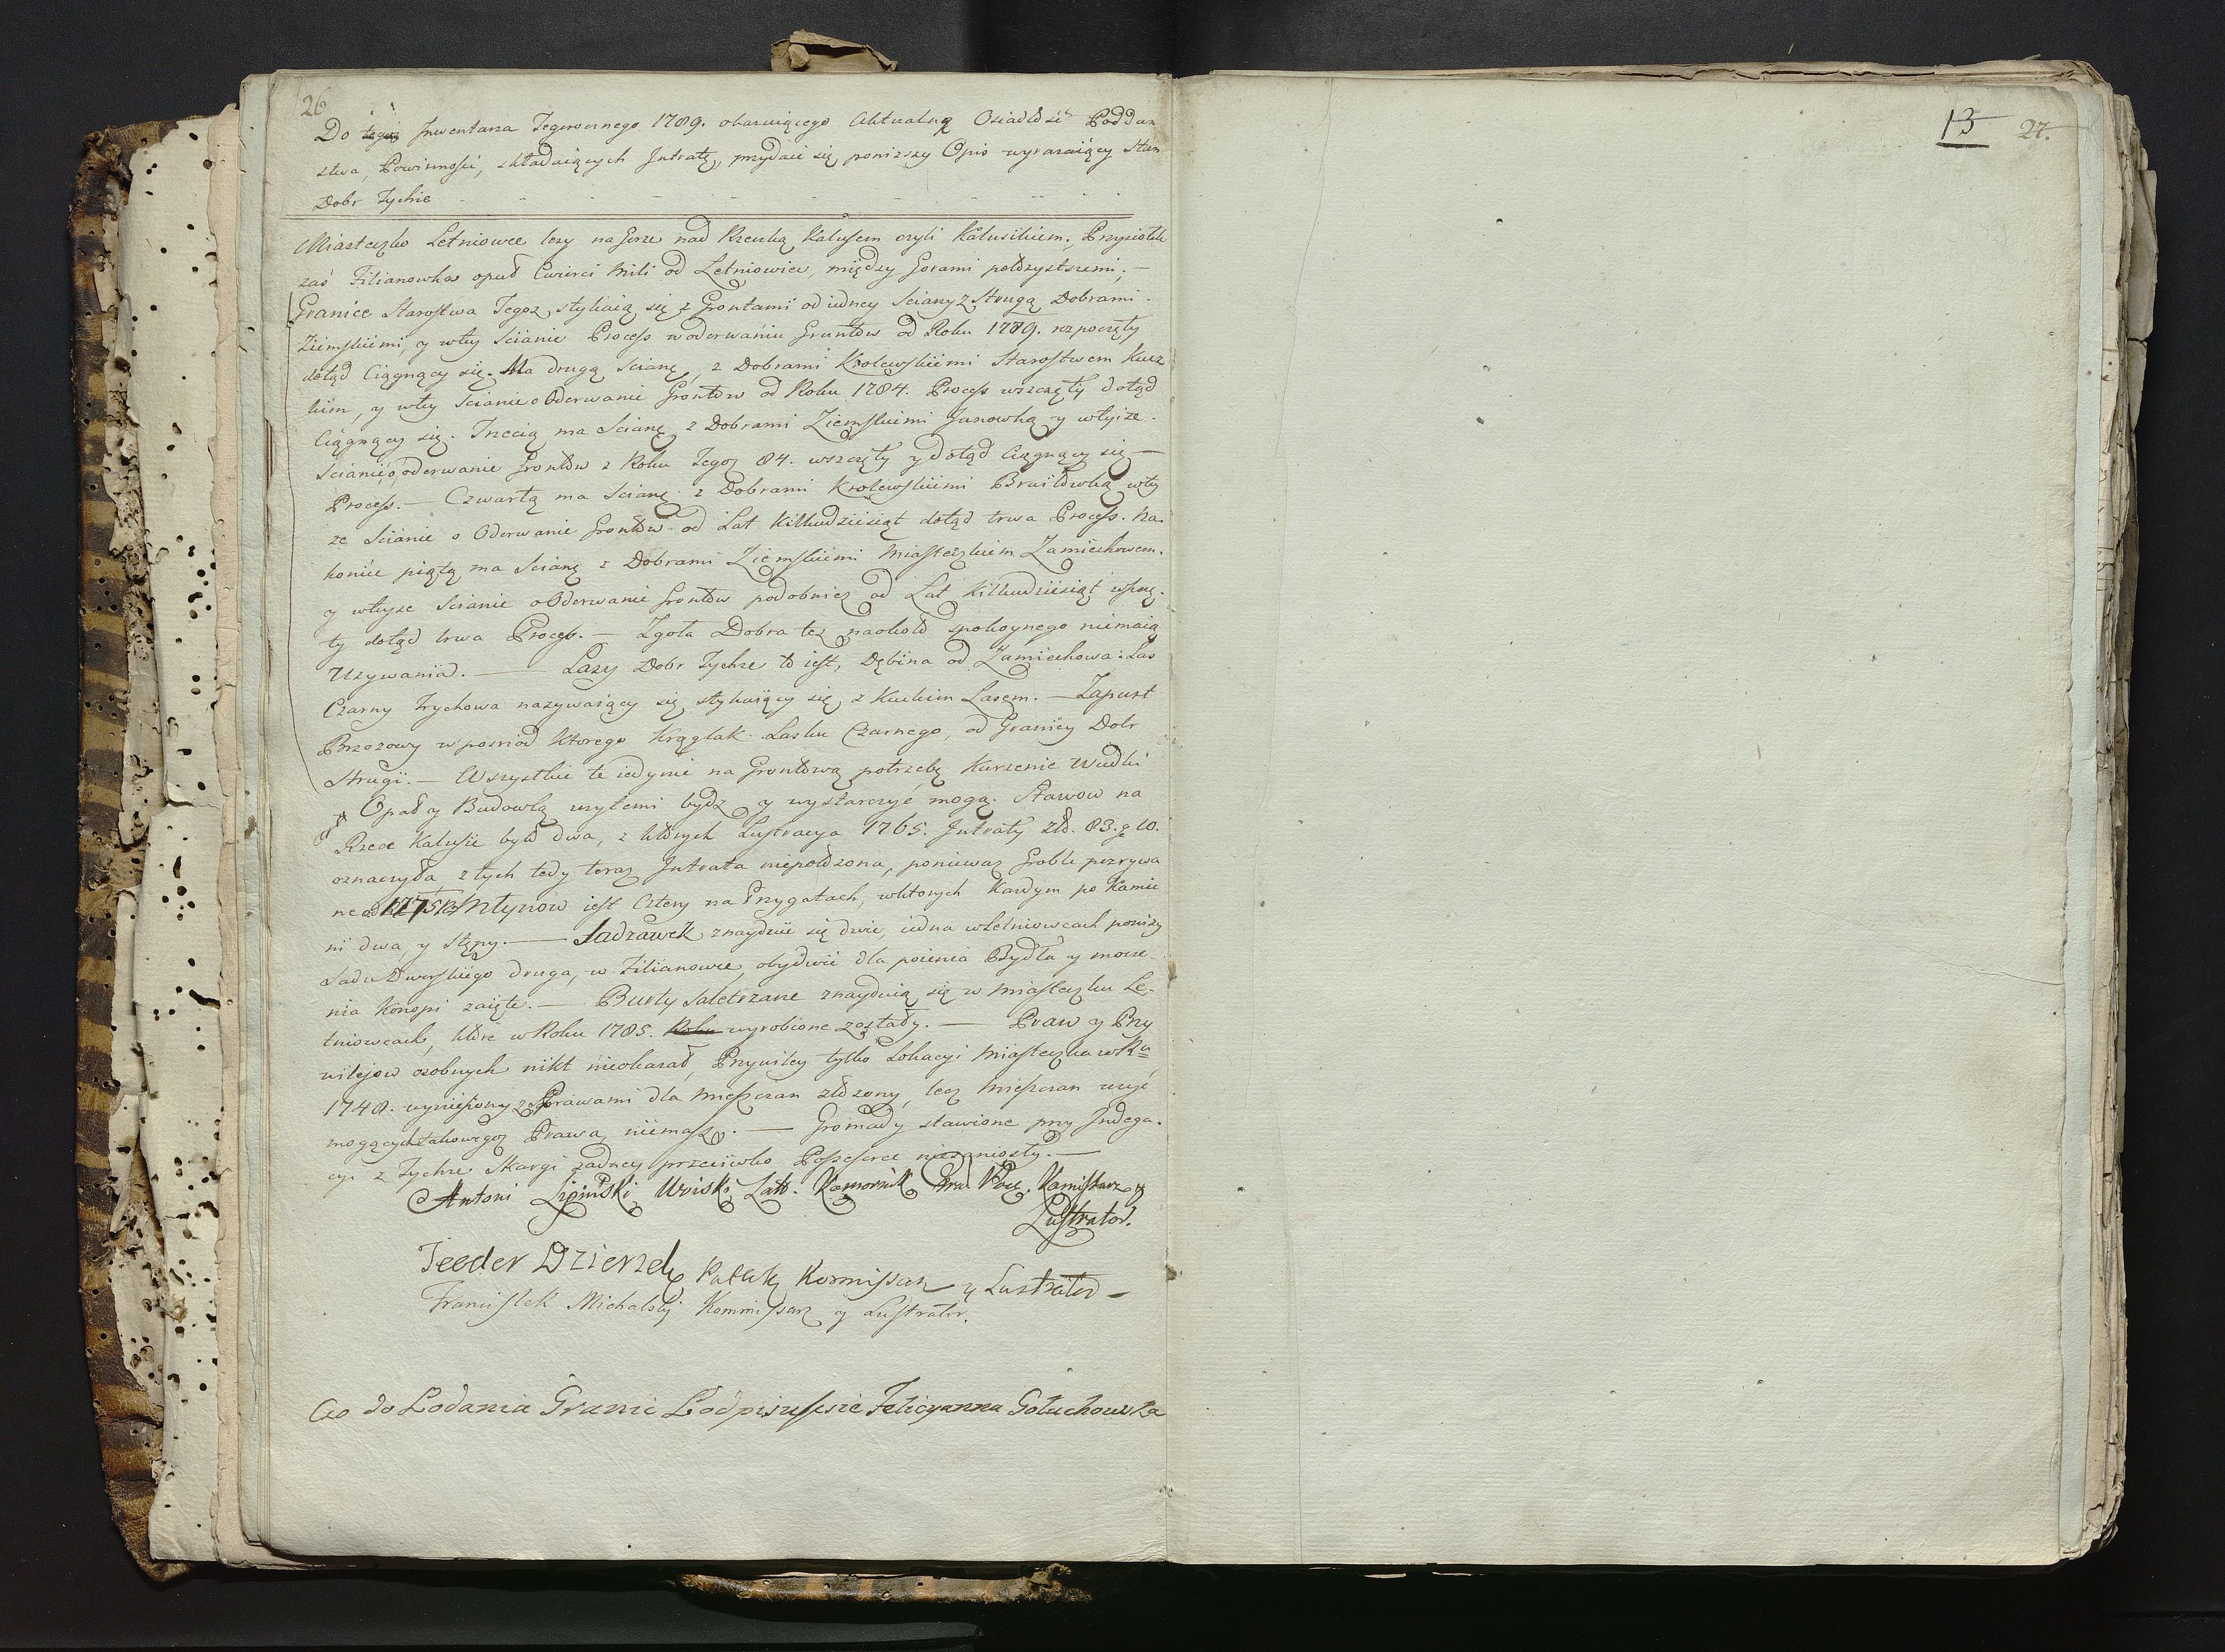 26
Do tegoż Jnwentarza Tegorocznego 1789. okazuiącego Aktualną Osiadłość Poddan
stwa, Powinność, składaiących Jntratę, przydaie się poniższy Opis wyrażaiący Stan
Dobr Tychże
Miasteczko Letniowce leży na Gorze nad Rzeczką Kalusem czyli Kalusikiem; Przysiołek
zaś Filianowka opuł Cwierci Mili od Letniowiec, między Gorami położystszemi; —
Granice Starostwa Tegoz stykaią się z Grontami od iedney Sciany z Strugą Dobrami
Ziemskiemi, y wtey Scianie Process w oderwaniu Gruntow od Roku 1779. rozpoczęty
dotąd Ciągnący się. Ma drugą Scianę, z Dobrami Krolewskiemi Starostwem Kucz
kim, y wtey Scianie o Oderwanie Grontow od Roku 1784. Process wszczęty dotąd
Ciągnący się. Trzecią ma Scianę z Dobrami Ziemskiemi Janowką y wteyże
Scianie o oderwanie Grontow z Roku Tegoz 84. wszczęty y dotąd Ciągnący się —
Process. — Czwartą ma Scianę z Dobrami Krolewskiemi Braiłowką wtey
że Scianie o Oderwanie Grontow od Lat Kilkudziesiąt dotąd trwa Process. Na
koniec piątą ma Scianę z Dobrami Ziemskiemi Miasteczkiem Zamiechowem.
y wteyże Scianie o Oderwanie Grontow podobniez od Lat Kilkudziesiąt wszczę
ty dotąd trwa Process. — Zgoła Dobra te naokoło spokoynego niemaią
Uzywania. — Lasy Dobr Tychże to iest, Dębina od Zamiechowa: Las
Czarny Trychowa nazywaiący się stykaiący się z Kuckim Lasem. — Zapust
Brzozowy w posrod ktorego Krąglak Lasku Czarnego, od Granicy Dobr
Strugi. — Wszystkie te iedynie na Grontową potrzebę Kurzenie Wudki
Opał y Budowlą uzytemi bydz y wystarczyć mogą. Stawow na
Rzece Kalusie było dwa, z ktorych Lustracya 1765. Jntraty zło. 83. g 10.
oznaczyła z tych tedy teraz Jntrata niepołozona, poniewaz Groble pozrywa
ne od 1775 R. Młynow iest cztery na Przygatach, wktorych Kazdym po Kamie
ni dwa, y stępy. — Sadzawek znayduie się dwie, iedna w Letniowcach ponizy
Sadu Dworskiego druga, w Filianowce, obydwie dla poienia Bydła y mocze
nia Konopi zaięte. — Burty Saletrzane znayduią się w Miasteczku Le
tniowcach, które w Roku 1785. Roku wyrobione zostały. — Praw y Przy
wilejow osobnych nikt nieokazał, Przywiley tylko Lokacyi Miasteczka w Ru
1748. wyniesiony z Prawami dla Mieszczan złozony, lecz Mieszczan uzyć
mogących takowegoz Prawa niemasz. — Gromady stawione przy Jndaga
cyi z Tychże Skargi żadney przeciwko Possesorce niezaniosły. —
Antoni Lipiński Woiski Lat. Komornik Kommissarz y
Lustrator.
Teodor Dzierzek Kommissarz y Lustrator —
Franciszek Michalski Kommissarz y Lustrator.
Co do Podania Granic Podpisuiesie Felicyanna Gołuchowska
13
27.